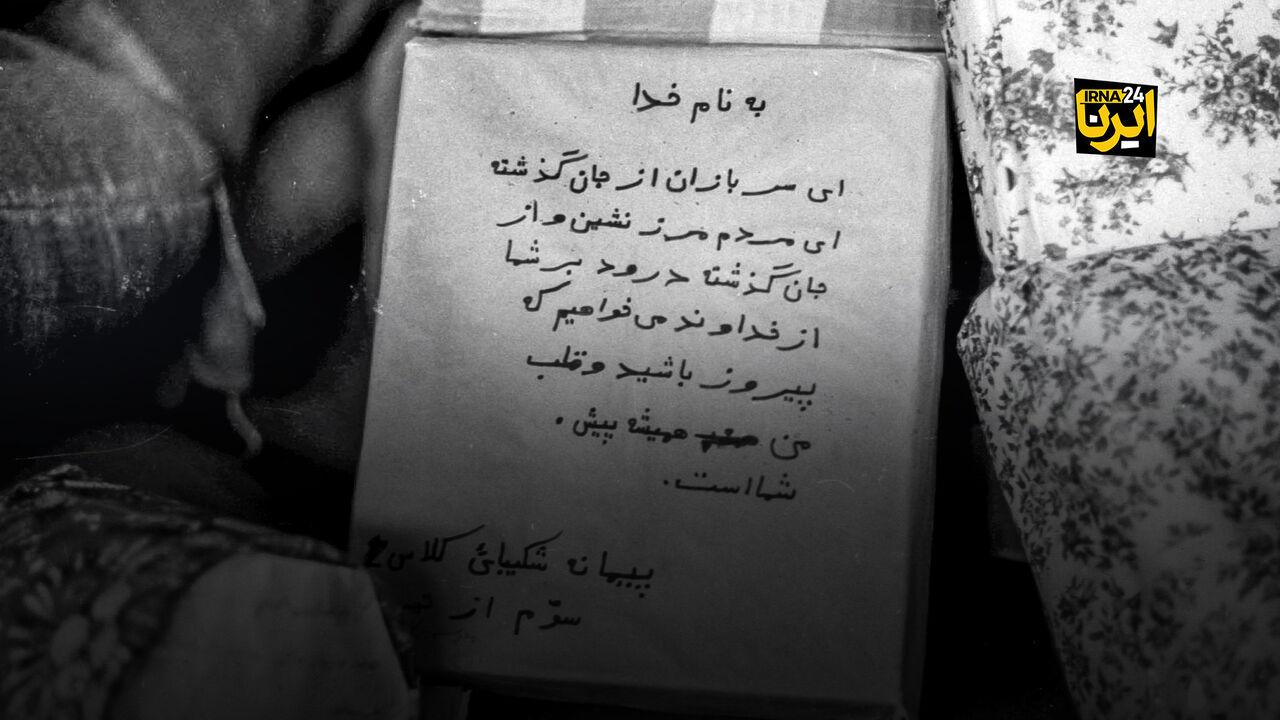 IRNA24
ایرنا
به نام خدا
ای سربازان از جان گذشته
ای مردم مرز نشین و از
جان گذشته درود بر شما
از خداوند می‌خواهیم که
پیروز باشید و قلب
من همیشه پیش .
شما است.
پیمانه شکیبائی کلاس
سوّم از